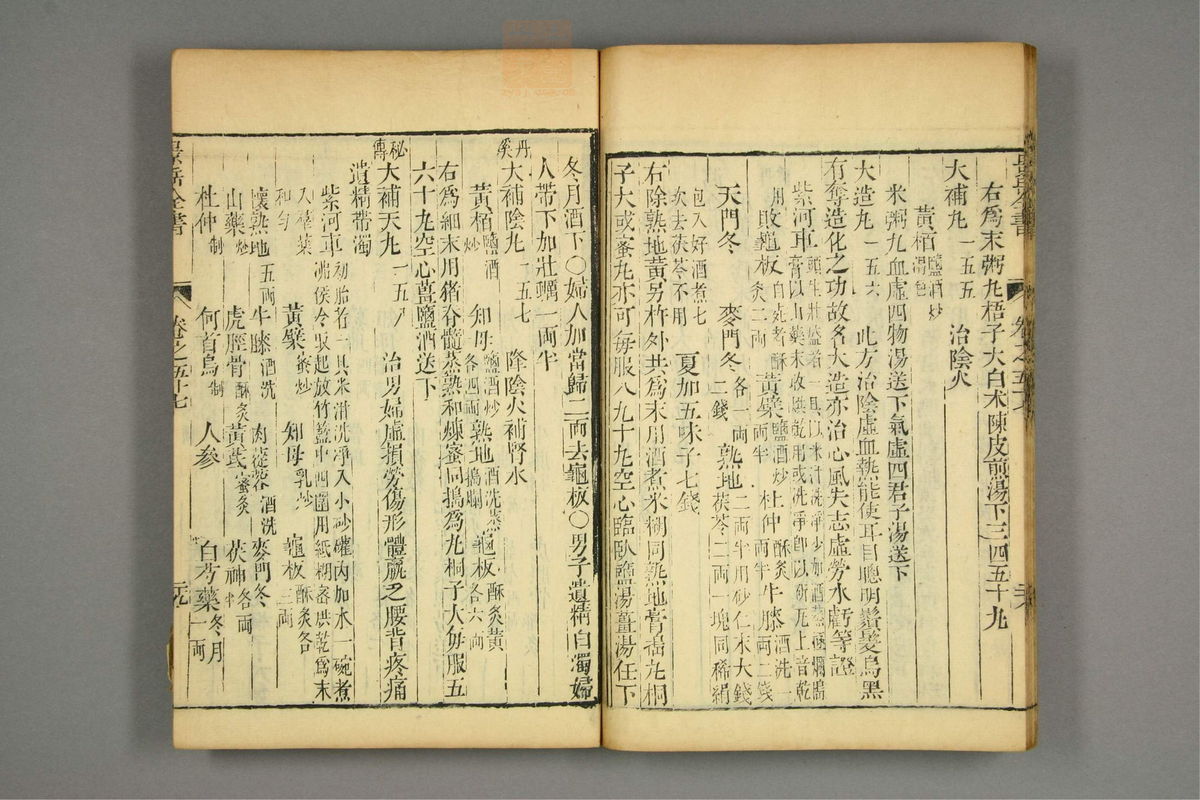 右爲末粥丸梧子大白朮陳皮煎湯下三四五十丸
大補丸 一五五 治陰火
黃栢 鹽酒炒褐色
米粥丸血虛四物湯送下氣虛四君子湯送下
大造丸 一五六 此方治陰虛血熱能使耳目聰明鬚髮烏黑
有奪造化之功故名大造亦治心風失志虛勞水虧等證
紫河車
敗龜板 自死者酥炙二兩 黃檗 鹽酒炒兩半 杜仲 酥炙兩半 牛膝 酒洗一兩二錢
天門冬 麥門冬 各一兩二錢 熟地 二兩半用砂仁末六錢茯苓二兩一塊同稀絹
包入好酒煮七次去茯苓不用 夏加五味子七錢
右除熟地黃另杵外共爲末用酒煮米糊同熟地膏搗丸桐
子大或蜜丸亦可每服八九十丸空心臨臥鹽湯薑湯任下
冬月酒下○婦人加當歸二兩去龜板○男子遺精白濁婦
人帶下加牡蠣一兩半
丹溪大補陰丸 一五七 降陰火補腎水
黃栢 鹽酒炒 知母 鹽酒炒各四兩 熟地 酒洗蒸搗爛 龜板 酥炙黃各六兩
右爲細末用猪脊髓蒸熟和煉蜜同搗爲丸桐子大每服五
六十丸空心薑鹽酒送下
秘傳大補天丸 一五八 治男婦虛損勞傷形體羸乏腰背疼痛
遺精帶濁
紫河車 初胎者一具米泔洗淨入小砂罐內加水一碗煮沸候冷取起放竹籃中四圍用紙糊密烘乾爲末入羣藥和勻 黃檗 蜜炒 知母 乳炒 龜板 酥炙各三兩
懷熟地 五兩 牛膝 酒洗 肉蓯蓉 酒洗 麥門冬
山藥 炒 虎脛骨 酥炙 黃芪 蜜炙 茯神 各兩半
杜仲 制 何首烏 制 人參 白芍藥 冬月一兩
景岳全書 卷之五十七